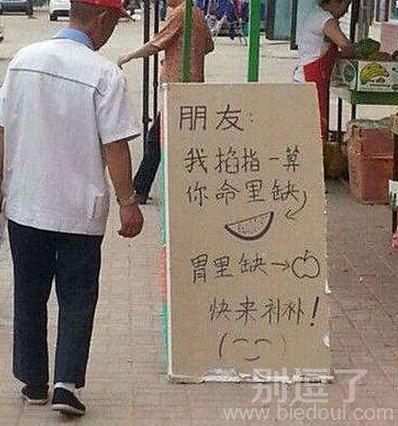 朋友：
我掐指一算
你命里缺
胃里缺→
快来补补！
别逗了
www.biedoul.com